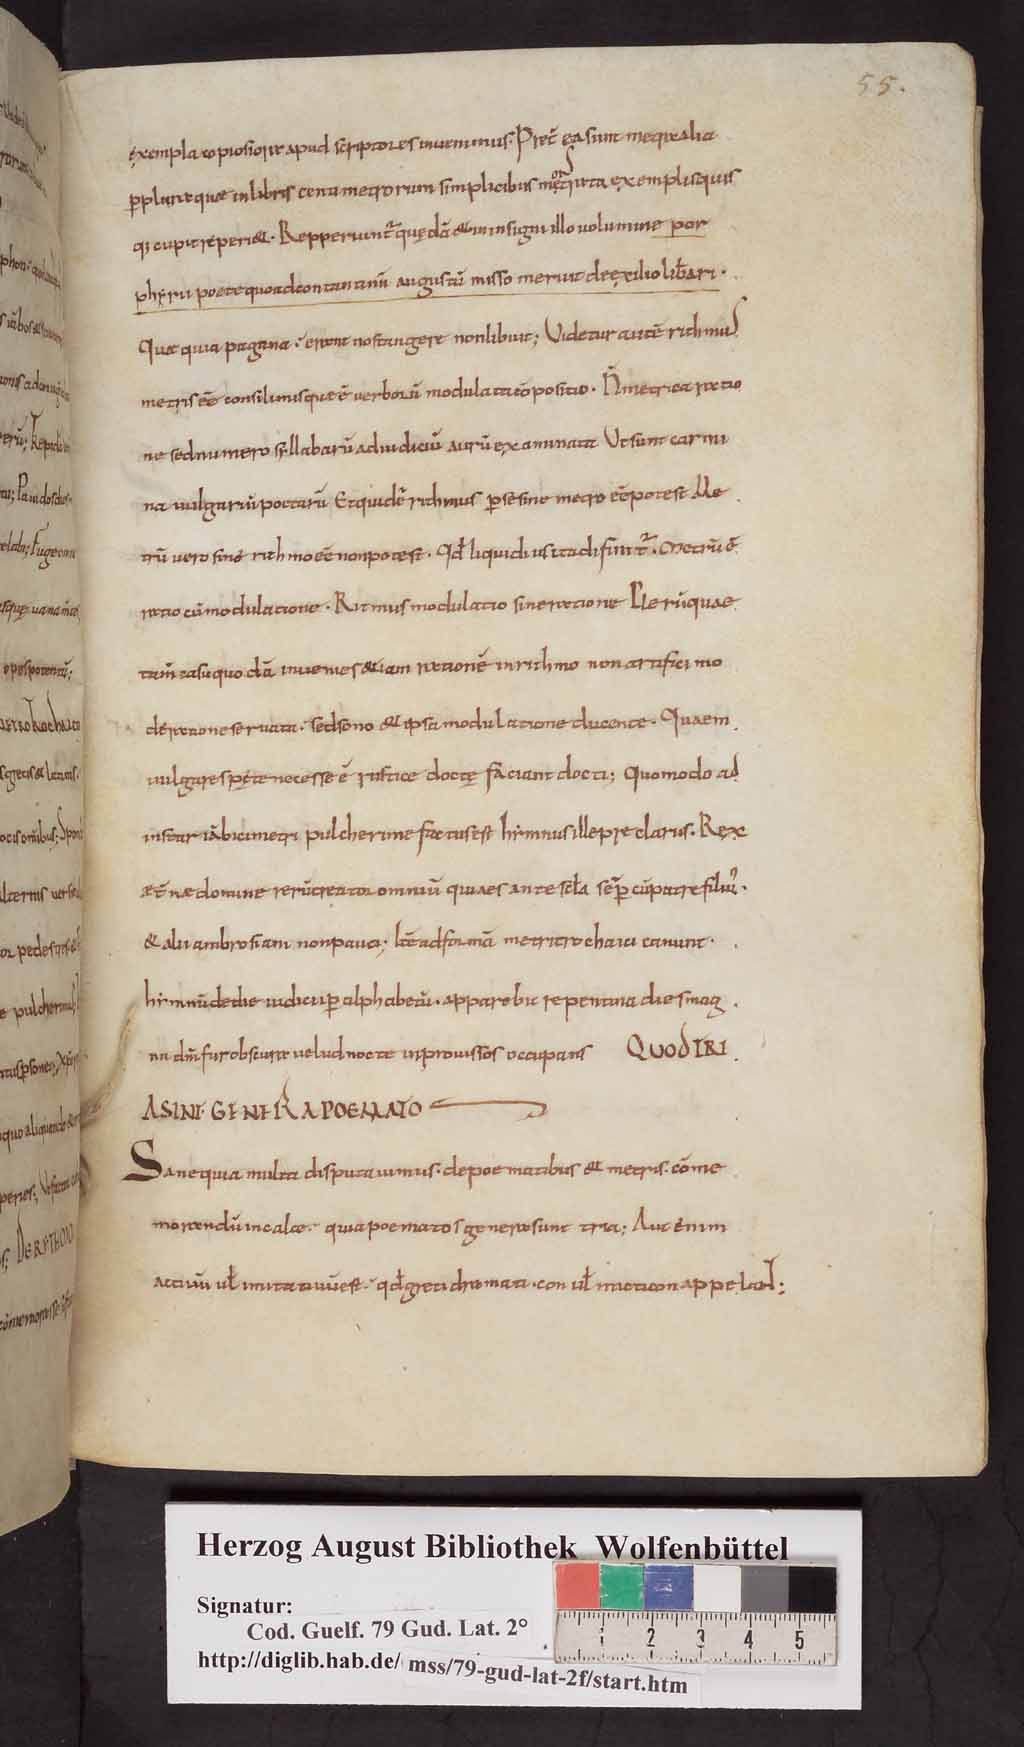 55.
exempla copiosiora apud scriptores invenimus. Pret̄ ea sunt metra alia
ꝑplura quae inlibris centimetrorum simplicibus monstrata exemplis quis
qi cupit reperi&. Repperiunt̄ quędā & in insigni illo volumine por
phyrii poete quo ad contantinū augustū misso meruit de exilio liƀari.
Quae quia pagana. erant nos tangere non libuit; Videtur autē rithmus
metris eē consilimis que ē verborū modulata cōpositio. N̄ metrica ratio
ne sed numero syllabarū ad iudiciū auriū examinata Ut sunt carmi
na vulgariū poetarū Et quidē rithmus ꝑ se sine metro eē potest Me
trū vero sine rithmo eē non potest. Qđ liquidius ita difinit̄. Metrū ē
ratio cū modulatione. Ritmus modulatio sine ratione Plerūquae
tam̄ casu quodā invenies &iam rationē in rithmo non artifici mo
deratione servata. sed sono & ipsa modulatione ducente. Quaem
vulgares poęte necesse ē rustice doctę faciant docti; Quomodo ad
instar iābici metri pulcherime factus est hymnus ille pręclarus. Rex
aet̄nae domine rerū creator omniū qui aes ante scl̄a sēꝑ cū patre filius.
& alii ambrosiani non pauci; Itē ad formā metri trochaici canunt.
hymnū de die iudicii ꝑ alphabetū. apparebit repentina dies mag
ni dn̄i fur obscura velud nocte inprovissos occupans QUOD TRI
A SINT GENERA POEMATO
Sane quia multa disputavimus. de poematibus & metris. cōme
morandū in calce. quia poematos genera sunt tria; Aut enim
activū uł imitativū est. qđ greci dramati. con uł micticon appelant;
Herzog August Bibliothek Wolfenbüttel
Signatur:
Cod. Guelf. 79 Gud. Lat. 2°
http://diglib.hab.de/ mss/79-gud-lat-2f/start.htm
1 2 3 4 5